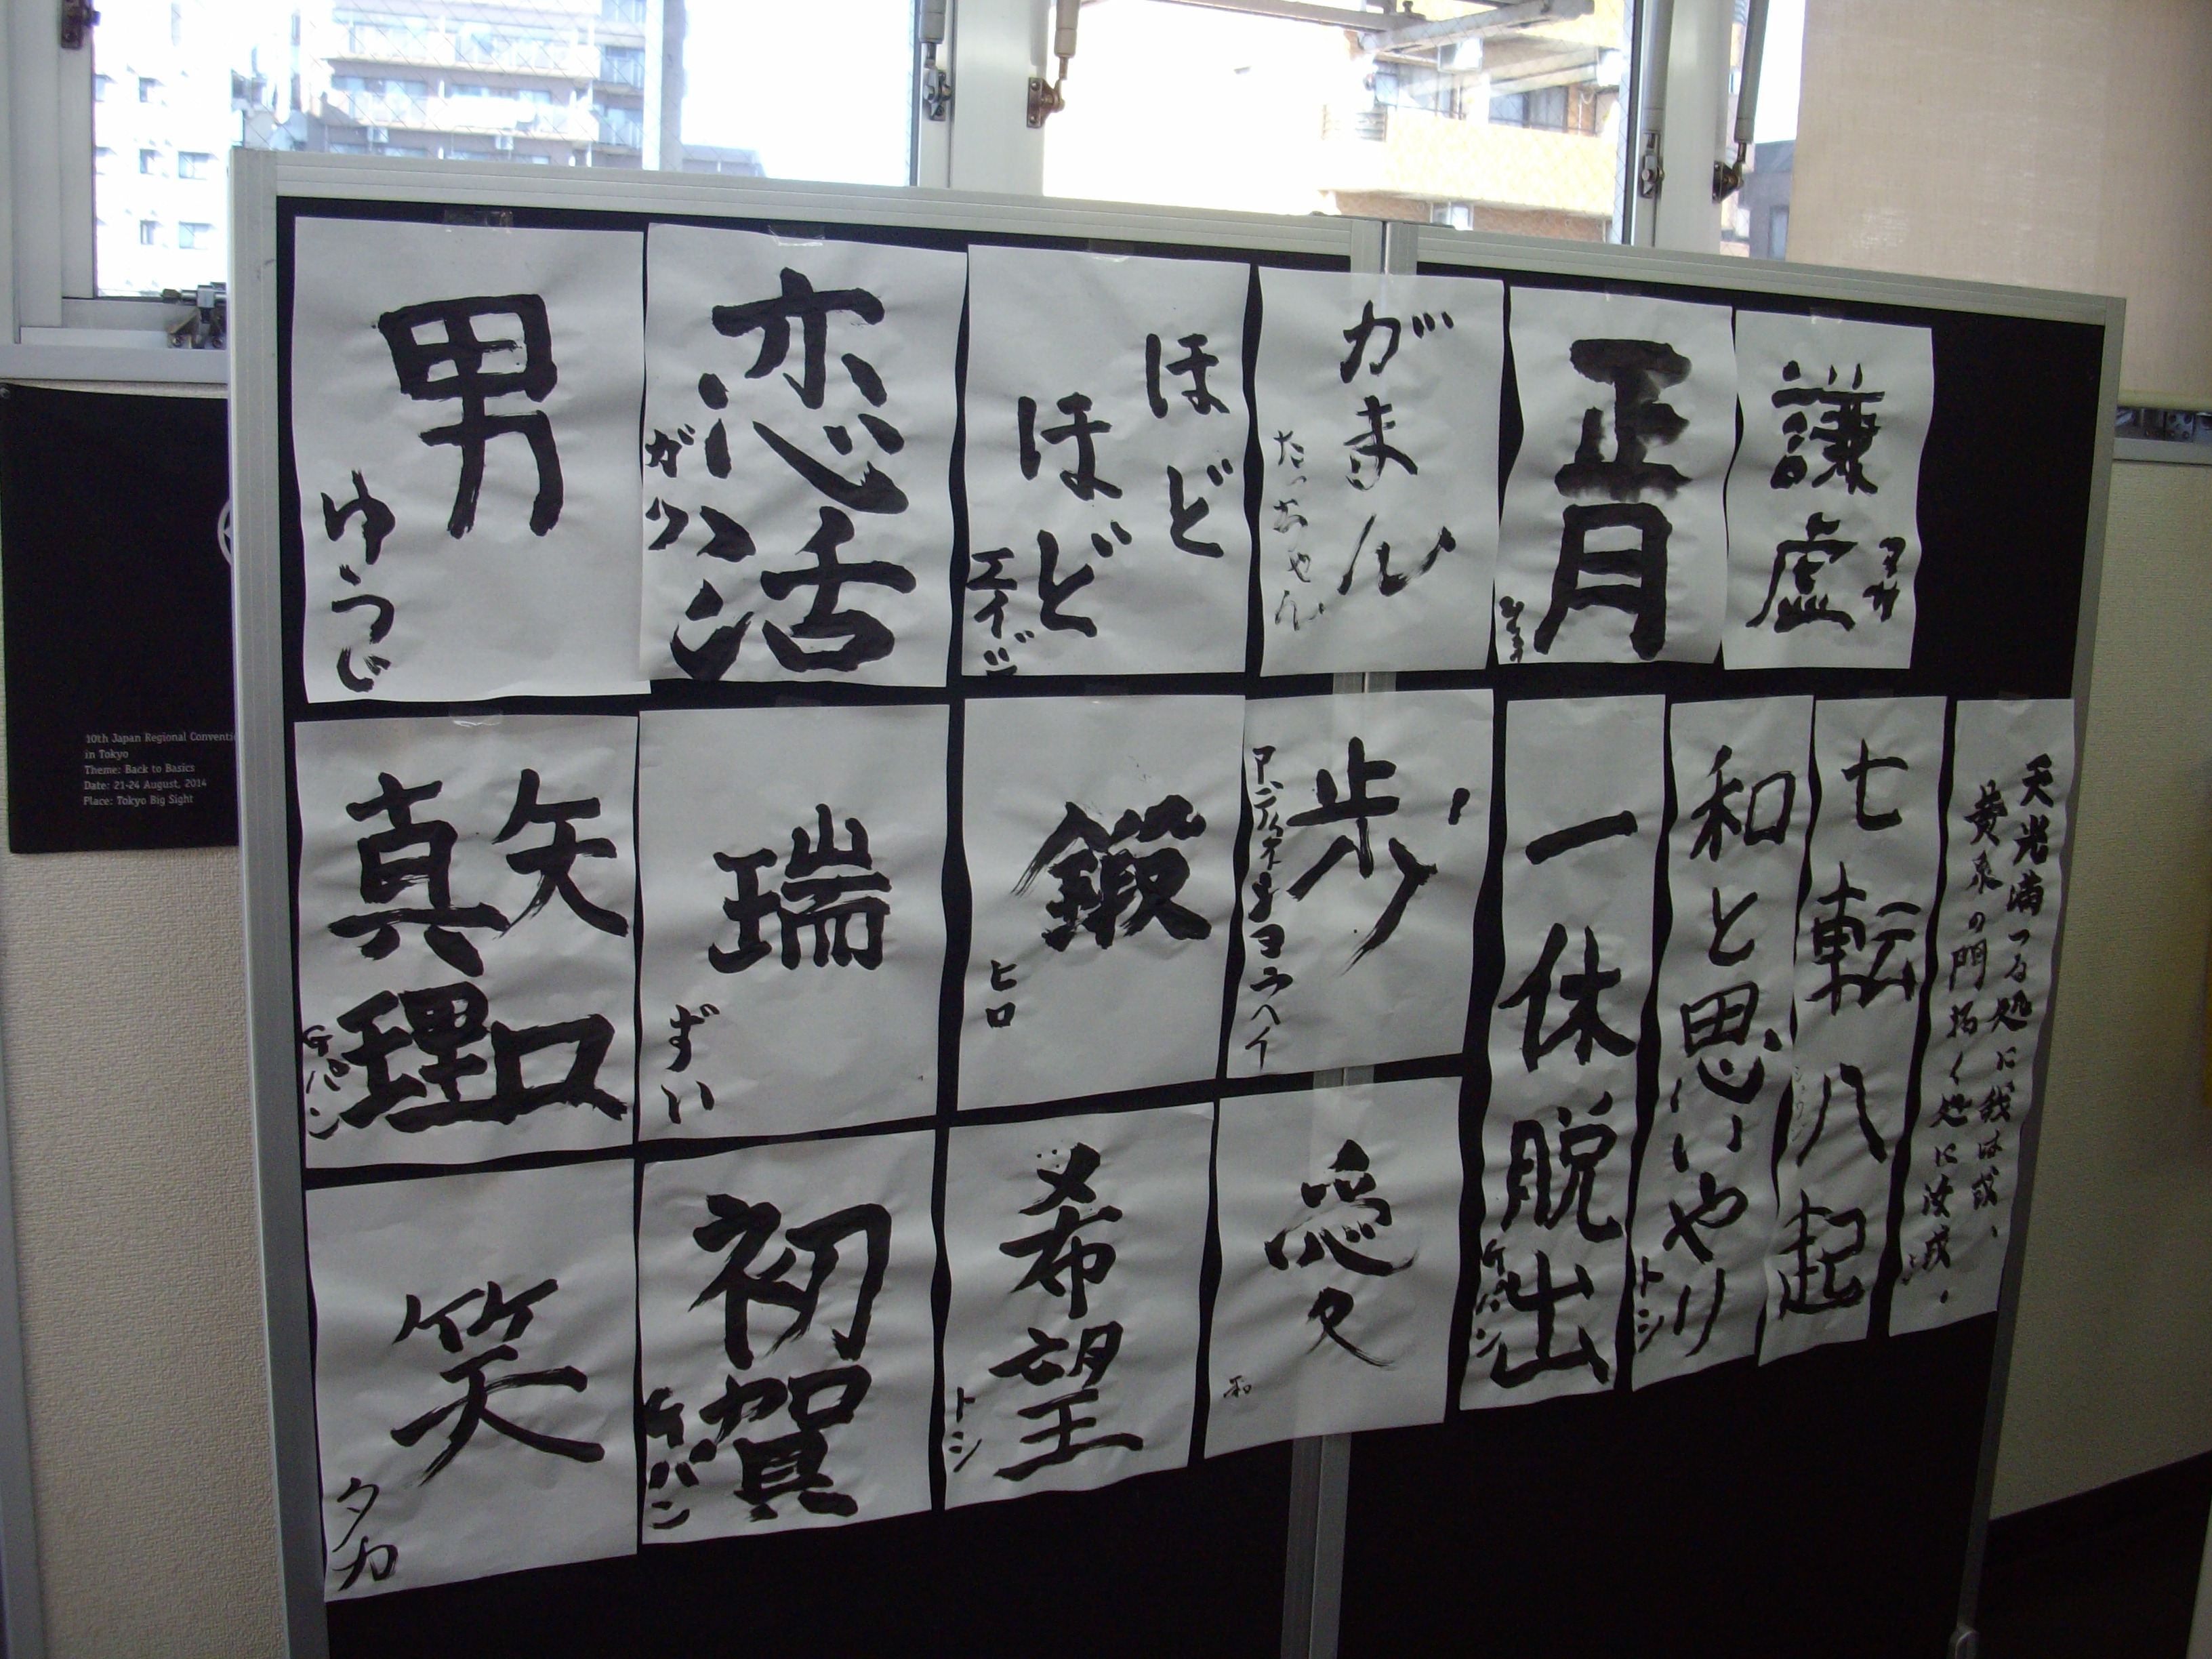 男
ゆうじ
恋活
ガク
ほど
ほど
エイジ
がまん
たっちゃん
正月
謙虚
マサ
10th Japan Regional Conventi
in Tokyo
Theme: Back to Basics
Date: 21-24 August, 2014
Place: Tokyo Big Sight
真理
ケバン
瑞
ずい
鍛
ヒロ
歩
一休脱出
ケバン
和と思いやり
トシ
七転八起
天光満つる処に我は在り
黄泉の門拓く処に汝在り
笑
タカ
初賀
ケバン
希望
トシ
愛々
和